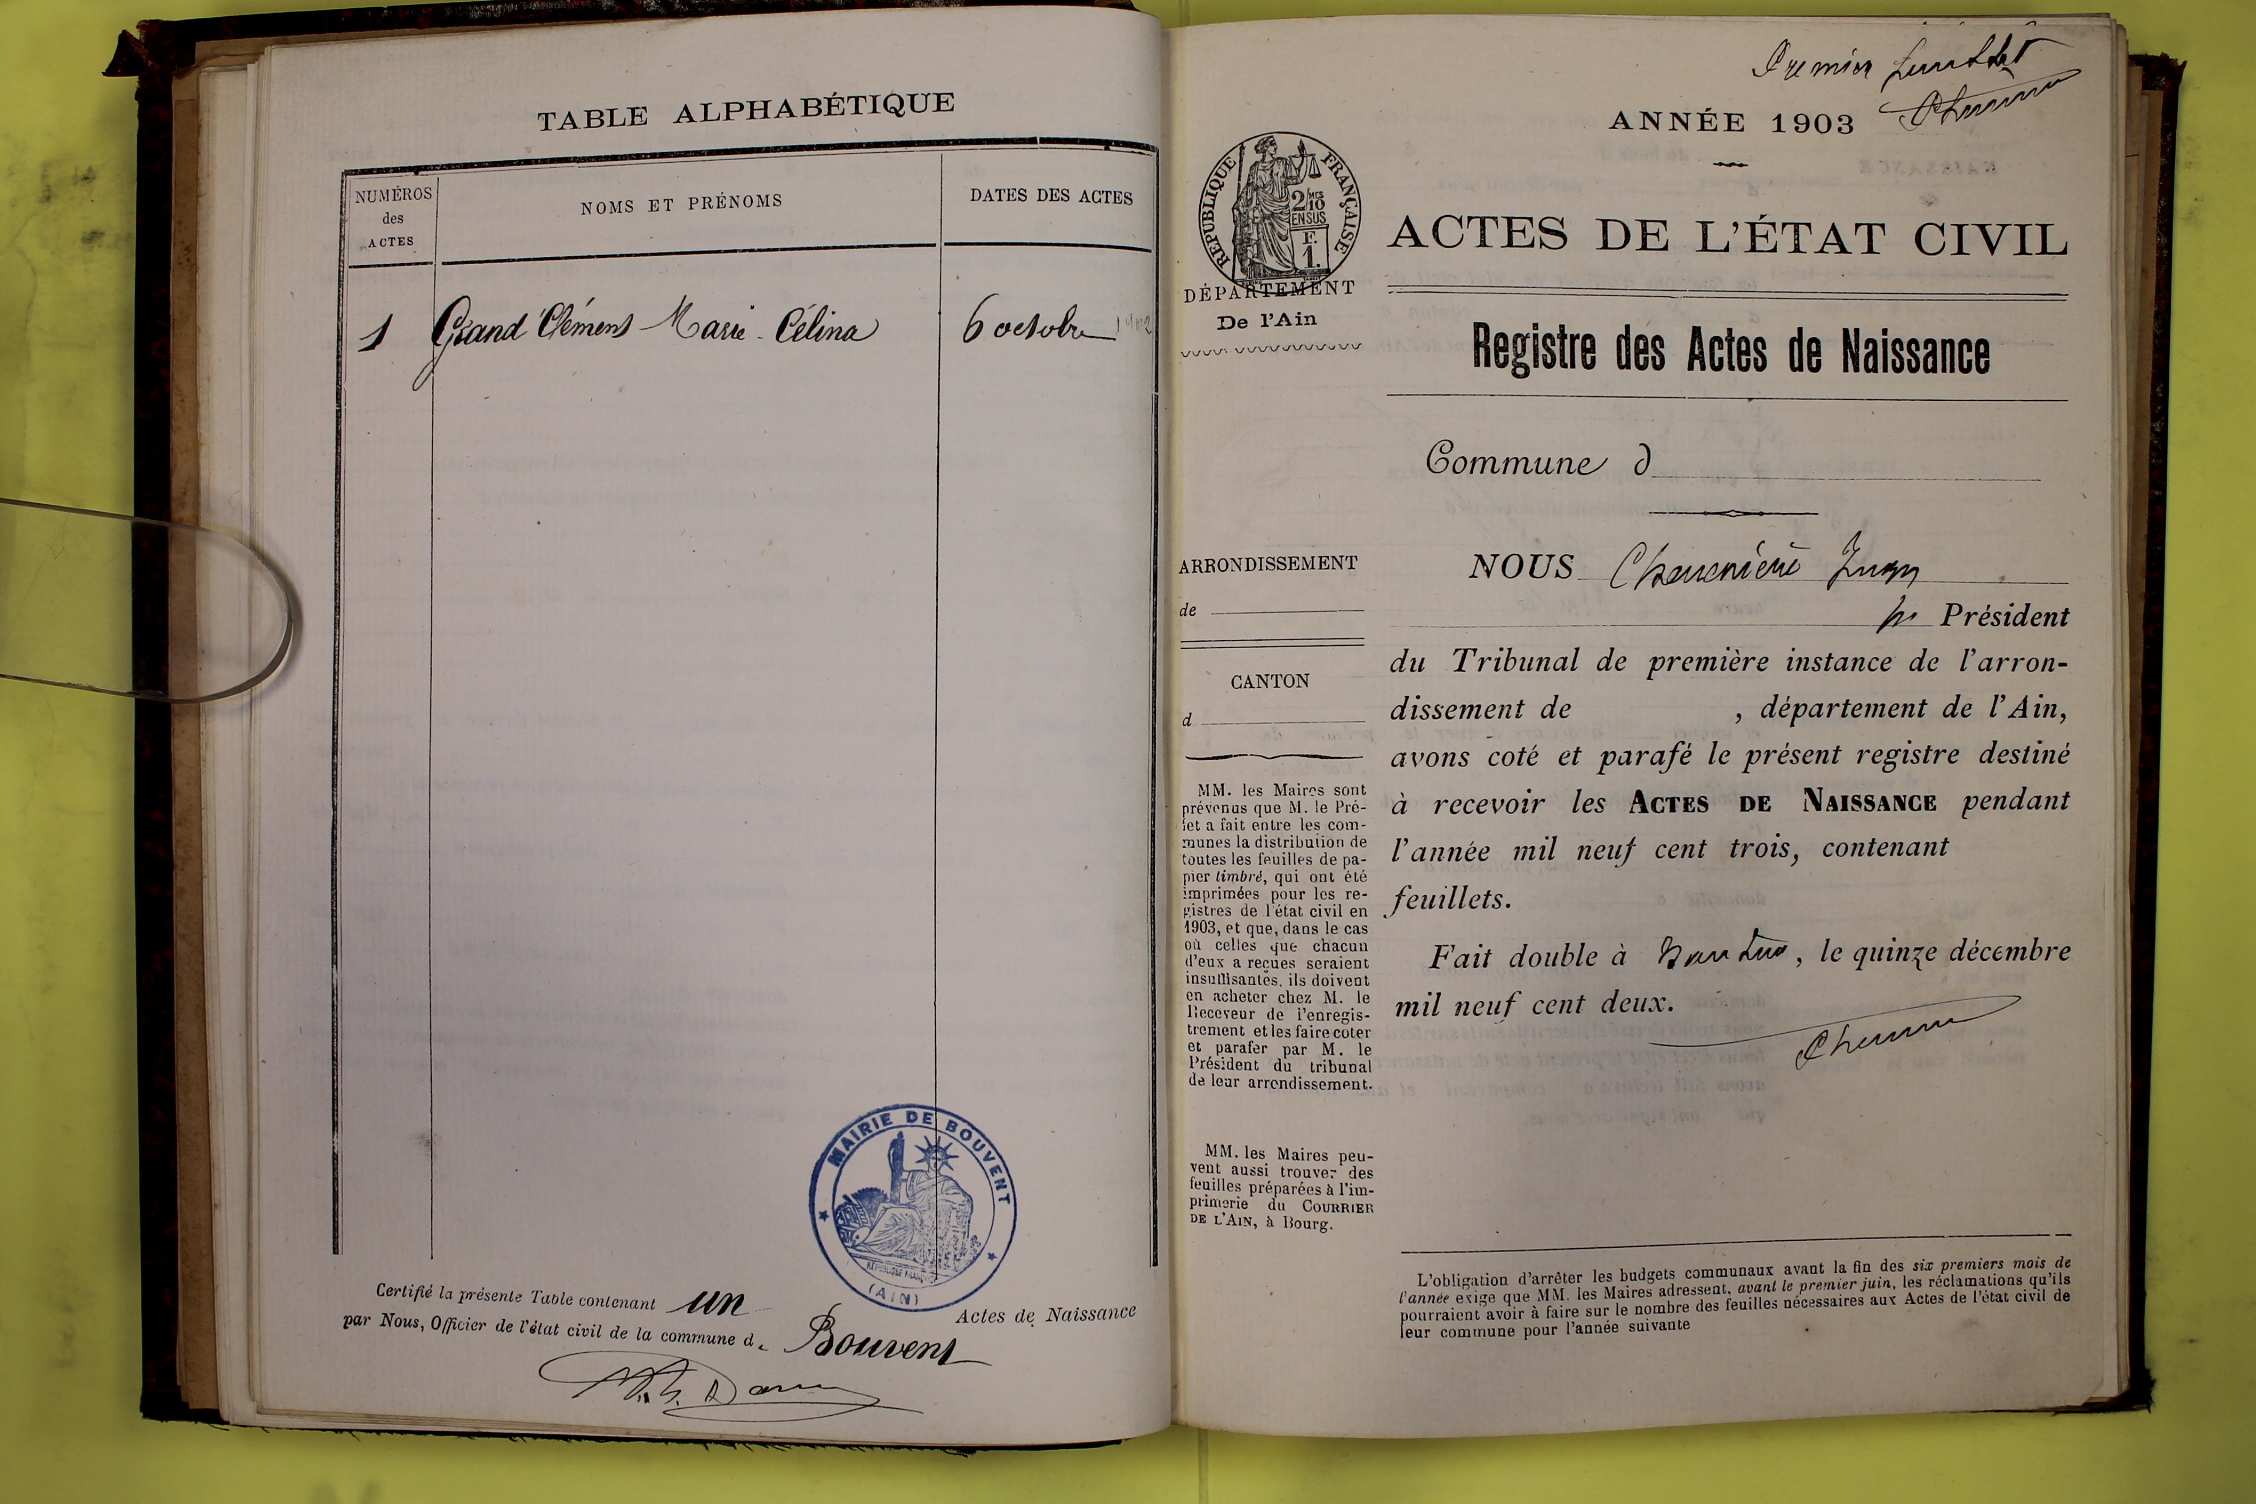 TABLE ALPHABÉTIQUE
NUMÉROS
des
ACTES
NOMS ET PRÉNOMS
DATES DES ACTES
1 Grand Clément Marie-Célina 6 octobre 1902
MAIRIE DE BOUVENT
RÉPUBLIQUE FRANÇ
(AIN)
Certifié la présente Table contenant un Actes de Naissance
par Nous, Officier de l'état civil de la commune d. Bouvent
Premier feuillet
ANNÉE 1903
RÉPUBLIQUE FRANÇAISE
2/10 MES
EN SUS
F.
1.
DÉPARTEMENT
De l'Ain
ACTES DE L'ÉTAT CIVIL
Registre des Actes de Naissance
Commune d
ARRONDISSEMENT
de
CANTON
d
MM. les Maires sont
prévenus que M. le Pré-
fet a fait entre les com-
munes la distribution de
toutes les feuilles de pa-
pier timbré, qui ont été
imprimées pour les re-
gistres de l'état civil en
1903, et que, dans le cas
où celles que chacun
d'eux a reçues seraient
insuffisantes, ils doivent
en acheter chez M. le
Receveur de l'enregis-
trement et les faire coter
et parafer par M. le
Président du tribunal
de leur arrondissement.
MM. les Maires peu-
vent aussi trouver des
feuilles préparées à l'im-
primerie du COURRIER
DE L'AIN, à Bourg.
NOUS
Président
du Tribunal de première instance de l'arron-
dissement de , département de l'Ain,
avons coté et parafé le présent registre destiné
à recevoir les ACTES DE NAISSANCE pendant
l'année mil neuf cent trois, contenant
feuillets.
Fait double à Nantua, le quinze décembre
mil neuf cent deux.
L'obligation d'arrêter les budgets communaux avant la fin des six premiers mois de
l'année exige que MM. les Maires adressent, avant le premier juin, les réclamations qu'ils
pourraient avoir à faire sur le nombre des feuilles nécessaires aux Actes de l'état civil de
leur commune pour l'année suivante